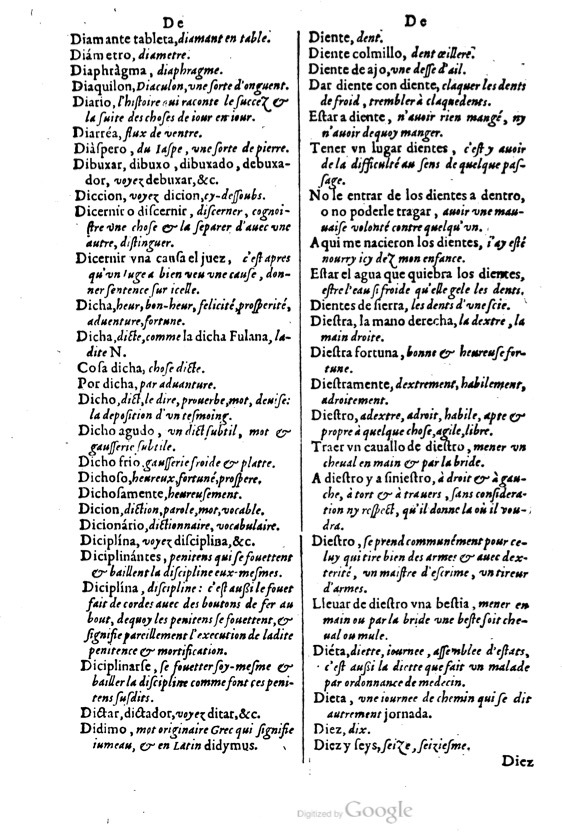 De
Diamante tableta, diamant en table.
Diámetro, diametre.
Diaphràgma, diaphragme.
Diaquilon, Diaculon, vne sorte d'onguent.
Diario, l'histoire qui raconte le succez &
la suite des choses de iour en iour.
Diarréa, flux de ventre.
Diàspero, du Iaspe, vne sorte de pierre.
Dibuxar, dibuxo, dibuxado, debuxa-
dor, voyez debuxar, &c.
Diccion, voyez dicion, cy-dessoubs.
Dicernir o discernir, discerner, cognoi-
stre vne chose & la separer d'auec vne
autre, distinguer.
Dicernir vna causa el juez, c'est apres
qu'vn Iuge a bien veu vne cause, don-
ner sentence sur icelle.
Dicha, heur, bon-heur, felicité, prosperité,
aduenture, fortune.
Dicha, dicte, comme la dicha Fulana, la-
dite N.
Cosa dicha, chose dicte.
Por dicha, par aduanture.
Dicho, dict, le dire, prouerbe, mot, deuise:
la deposition d'vn tesmoing.
Dicho agudo, vn dict subtil, mot &
gausserie subtile.
Dicho frio, gausserie froide & platte.
Dichoso, heureux, fortuné, prospere.
Dichosamente, heureusement.
Dicion, diction, parole, mot, vocable.
Dicionário, dictionnaire, vocabulaire.
Diciplína, voyez disciplina, &c.
Diciplinántes, penitens qui se fouettent
& baillent la discipline eux-mesmes.
Diciplína, discipline: c'est aussi le fouet
fait de cordes auec des boutons de fer au
bout, dequoy les penitens se fouettent, &
signifie pareillement l'execution de ladite
penitence & mortification.
Diciplinarse, se fouetter soy-mesme &
bailler la discipline comme font ces peni-
tens susdits.
Dictar, dictador, voyez ditar, &c.
Didimo, mot originaire Grec qui signifie
iumeau, & en Latin didymus.
De
Diente, dent.
Diente colmillo, dent œillere.
Diente de ajo, vne desse d'ail.
Dar diente con diente, claquer les dents
de froid, trembler à claquedents.
Estar a diente, n'auoir rien mangé, ny
n'auoir dequoy manger.
Tener vn lugar dientes, c'est y auoir
de la difficulté au sens de quelque pas-
sage.
No le entrar de los dientes a dentro,
o no poderle tragar, auoir vne mau-
uaise volonté contre quelqu'vn.
Aqui me nacieron los dientes, i'ay esté
nourry icy dez mon enfance.
Estar el agua que quiebra los dientes,
estre l'eau si froide qu'elle gele les dents.
Dientes de sierra, les dents d'vne scie.
Diestra, la mano derecha, la dextre, la
main droite.
Diestra fortuna, bonne & heureuse for-
tune.
Diestramente, dextrement, habilement,
adroitement.
Diestro, adextre, adroit, habile, apte &
propre à quelque chose, agile, libre.
Traer vn cauallo de diestro, mener vn
cheual en main & par la bride.
A diestro y a siniestro, à droit & à gau-
che, à tort & à trauers, sans considera-
tion ny respect, qu'il donne là où il vou-
dra.
Diestro, se prend communément pour ce-
luy qui tire bien des armes & auec dex-
terité, vn maistre d'escrime, vn tireur
d'armes.
Lleuar de diestro vna bestia, mener en
main ou par la bride vne beste soit che-
ual ou mule.
Diéta, diette, iournee, assemblee d'estats,
c'est aussi la diette que fait vn malade
par ordonnance de medecin.
Dieta, vne iournee de chemin qui se dit
autrement jornada.
Diez, dix.
Diez y seys, seize, seiziesme.
Diez
Digitized by Google